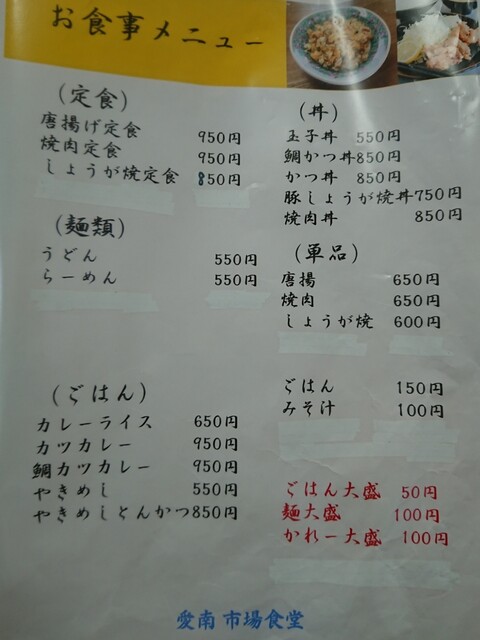 お食事メニュー
(定食)
唐揚げ定食 950円
焼肉定食 950円
しょうが焼定食 850円
(麺類)
うどん 550円
らーめん 550円
(ごはん)
カレーライス 650円
カツカレー 950円
鯛カツカレー 950円
やきめし 550円
やきめしとんかつ850円
(丼)
玉子丼 550円
鯛かつ丼850円
かつ丼 850円
豚しょうが焼丼750円
焼肉丼 850円
(単品)
唐揚 650円
焼肉 650円
しょうが焼 600円
ごはん 150円
みそ汁 100円
ごはん大盛 50円
麺大盛 100円
かれー大盛 100円
愛南市場食堂